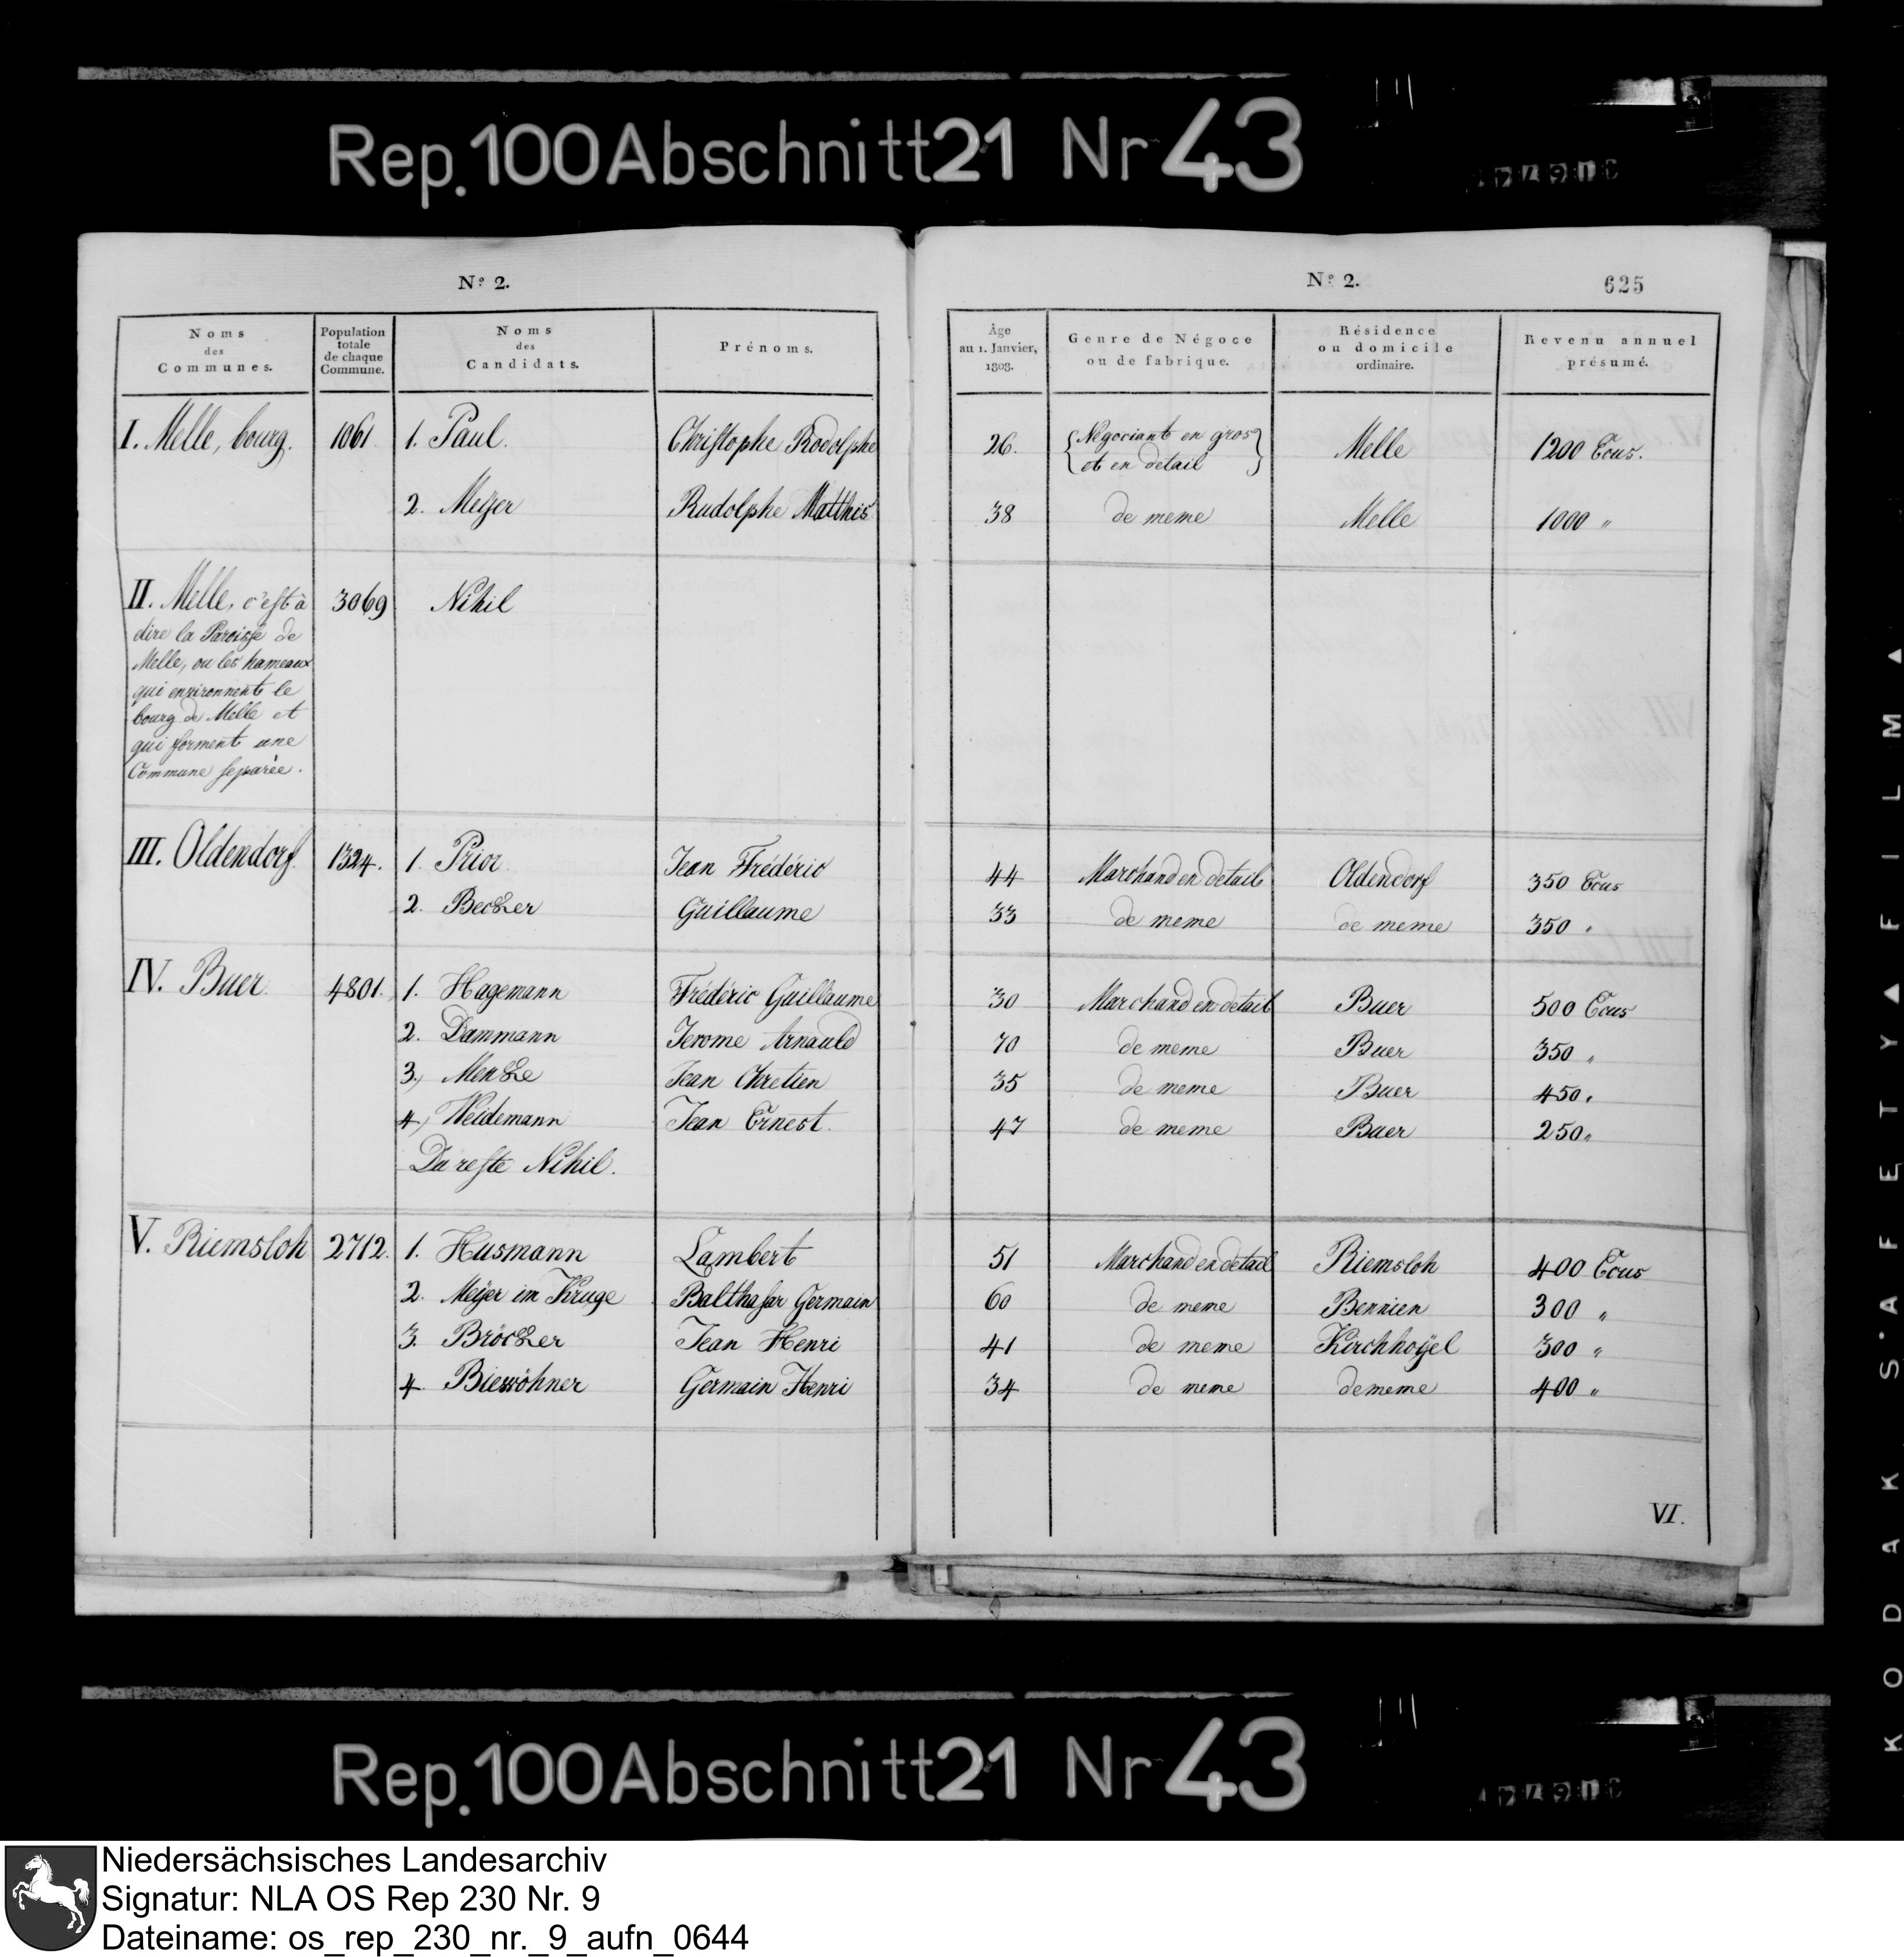 Rep. 100 Abschnitt 21 Nr 43
Nº 2.
Nº 2.
625
Noms des Communes.
Population totale de chaque Commune.
Noms des Candidats.
Prénoms.
Âge au 1. Janvier, 1808.
Genre de Négoce ou de fabrique.
Résidence ou domicile ordinaire.
Revenu annuel présumé.
I. Melle, bourg. 1061 1. Paul. Christophe Rodolphe 26. Négociant en gros et en detail Melle 1200 Ecus.
2. Meÿer Rudolphe Matthis 38 de meme Melle 1000 "
II. Melle, c'est à 3069 Nihil
dire la Paroisse de
Melle, ou les hameaux
qui environnent le
bourg de Melle et
qui forment une
Commune separée.
III. Oldendorf 1324. 1. Prior Jean Frédéric 44 Marchand en detail Oldendorf 350 Ecus
2. Becker Guillaume 33 de meme de meme 350 "
IV. Buer 4801. 1. Hagemann Frédéric Guillaume 30 Marchand en detail Buer 500 Ecus
2. Dammann Jerome Arnauld 70 de meme Buer 350 "
3.) Menke Jean Chretien 35 de meme Buer 450 "
4.) Weidemann Jean Ernest. 47 de meme Buer 250 "
Du reste Nihil.
V. Riemsloh 2712. 1. Husmann Lambert 51 Marchand en detail Riemsloh 400 Ecus
2. Meÿer im Kruge Balthasar Germain 60 de meme Bennien 300 "
3. Bröcker Jean Henri 41 de meme Kirchhoÿel 300 "
4. Biewöhner Germain Henri 34 de meme de meme 400 "
VI.
Rep. 100 Abschnitt 21 Nr 43
KODAK SAFETY FILM
Niedersächsisches Landesarchiv
Signatur: NLA OS Rep 230 Nr. 9
Dateiname: os_rep_230_nr._9_aufn_0644